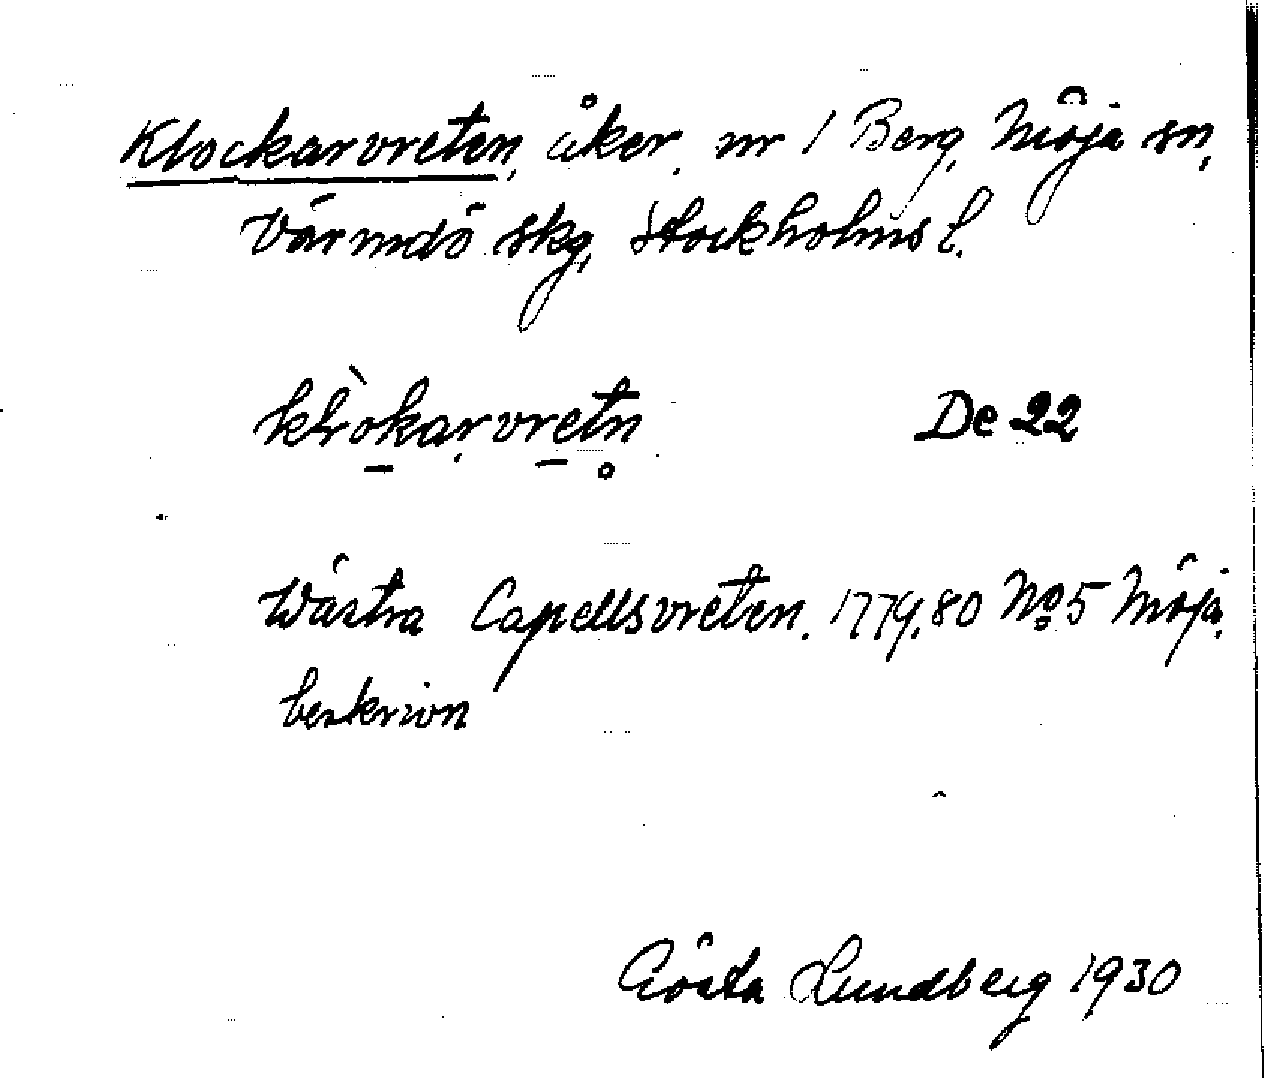 Klockarvreten, åker, nr 1 Berg, Möja sn,
Värmdö skg, Stockholms l.
De 22
Wästra Capellsvreten. 1779.80 No 5 Möja.
beskrivn
Gösta Lundberg 1930